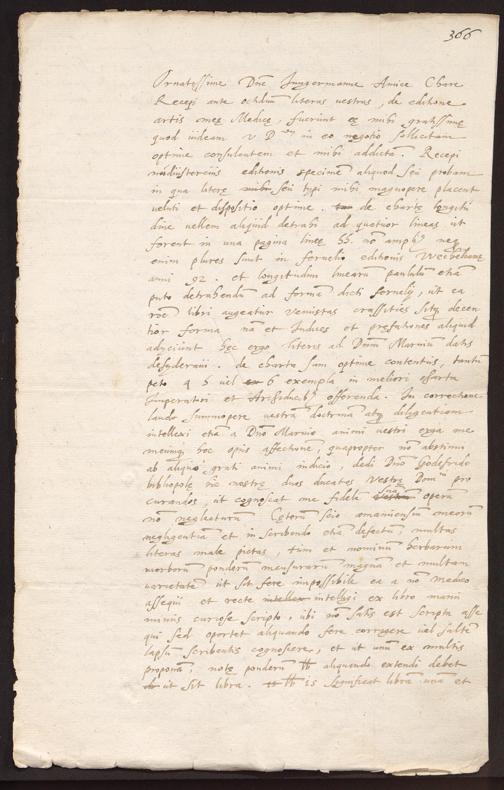 366
Ornatissime Dñe Jungermanne Amice Chare
Recepi ante octiduũ literas vestras, de editione
artis meę Medicę, fuerunt eę mihi gratissimę
quod videam V D in eo negotio sollicitam
optime consulentem et mihi addictã. Recepi
editionis specimẽ aliquod seu probam
in qua literę seu typi mihi magnopere placent
veluti et dispositio optime. de chartę longitu
dine vellem aliquid detrahi ad quatuor lineas ut
forent in una pagina lineę 55. nõ neq
enim plures sunt in fernelio editionis Wechelianę
anni 92. et longitudini linearũ paulũ etiã
puto detrahendũ ad formã dicti fernelij, ut ea
rõe libri augeatur venustas crassities sitq decen
tior forma nã et Indices et prefationes aliquid
adjicient hęc ergo literis ad Dñum Marniũ datis
desyderavi. de charta sum optime contentus, tantũ
peto 4 5 vel 6 exempla in meliori charta
Imperatori et Archiducib offerenda. In correctione
laudo summopere vestrã doctrinã atq diligentiam
intellexi etiã a Dño Marnio animi vestri erga me
meumq hoc opus affectione, quapropter nõ abstinui
ab aliquo grati animi indicio, dedi Dño Godefrido
bibliopolę nostro duos ducatos Vestrę pro
curandos, ut cognoscat me fidelẽ operã
nõ neglecturũ. Cęterũ scio amanuensiũ meorũ
negligentia et in scribendo etiã defectũ, multas
literas male pictas, tum et nominũ herbarũ
morborũ ponderũ mensurarũ magnã et multam
varietatẽ ut sit fere impossibile ea a nõ medico
assequi et recte intelligi ex libro manu
minus curiose scripto, ubi nõ satis est scripta asse
qui sed oportet aliquando fere corrigere vel saltẽ
lapsũ scribentis cognoscere, et ut unũ ex multis
proponã, notę ponderũ ℔ aliquando extendi debet
ut sit libra. ℔ is significat librã unã et